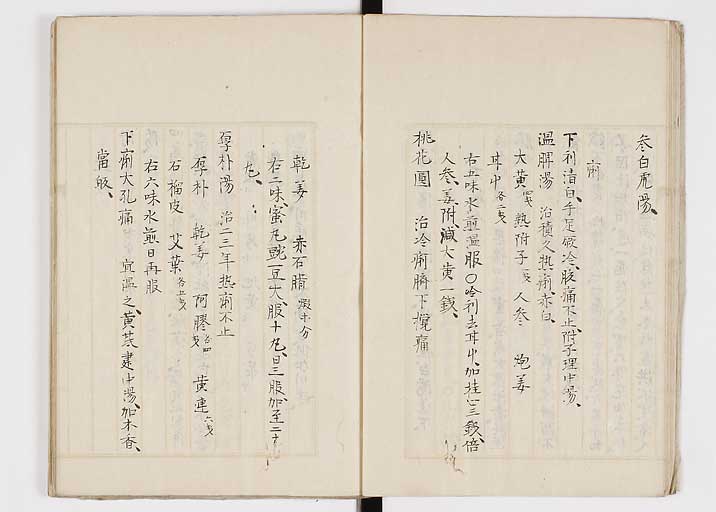 参白虎湯、
痢
下利清白、手足厥冷、腹痛不止、附子理中湯、
温脾湯 治積久熱痢赤白、
大黄四戔 熟附子一戔 人参 炮姜
甘中各二戔
右五味水煎温服〇冷利去甘中、加桂心三錢、倍
人参、姜附、減大黄一錢、
桃花圓 治冷痢臍下攪痛
乾姜 赤石脂煆等分
右二味蜜丸豌豆大、服十丸、日三服、加至二十
丸、
厚朴湯 治二三年热痢不止
厚朴 乾姜 阿膠各四戔 黄連六戔
石榴皮 艾葉各三戔
右六味水煎日再服
下痢大孔痛 宜温之、黄芪建中湯、加木香、
當皈、